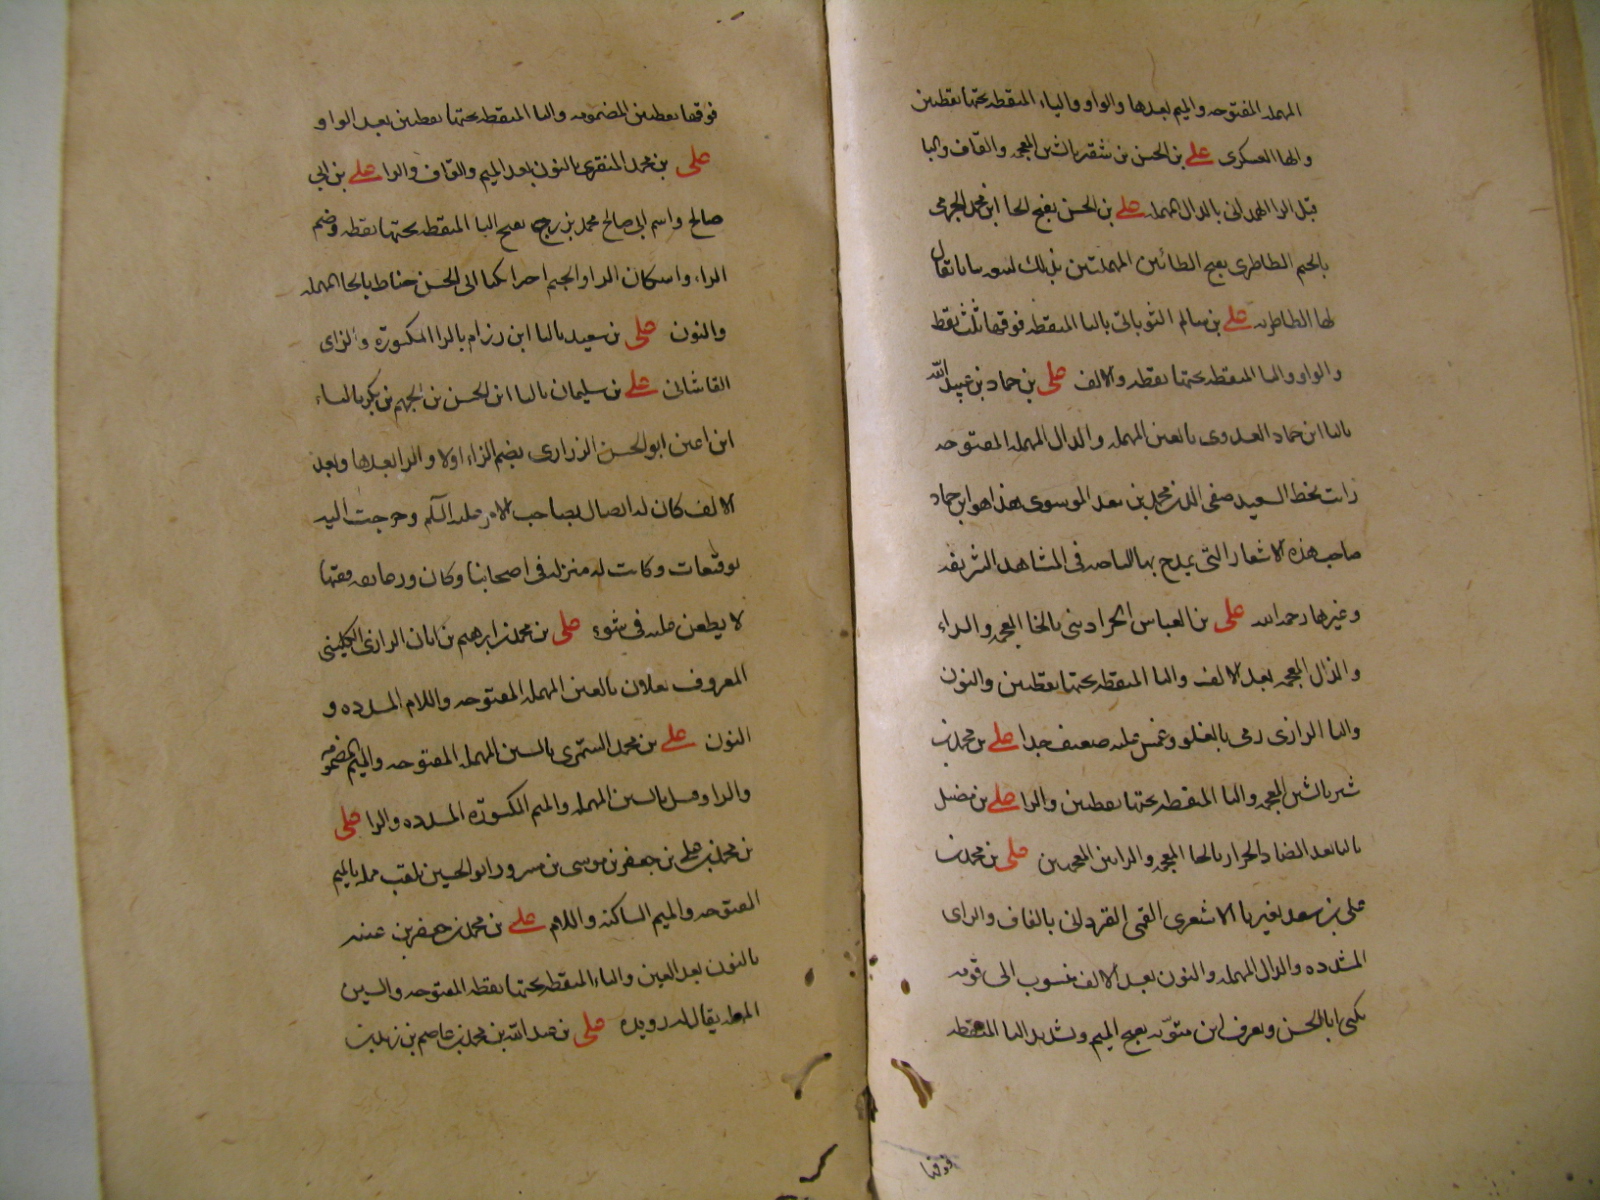 المهملة المفتوحه والميم بعدها والواو والياء المنقطه تحتها نقطتين
والها العسكرى علي بن الحسن بن شقير بالشين المعجمه والقاف واليا
قبل الرا الهمدانى بالدال المهمله علي بن الحسن بفتح الحا ابن محمد الجرمى
بالجيم الطاطرى بفتح الطائين المهملتين بذلك لبيعه ثيابا يقال
لها الطاطريه علي بن سالم الثوبانى بالثا المنقطه فوقها ثلث نقط
والواو والبا المنقطه تحتها نقطه والالف علي بن حماد بن عبيد الله
بالياء ابن حماد العدوى بالعين المهمله والدال المهمله المفتوحه
رايت بخط السعيد صفى الدين محمد بن معد الموسوى هذا هو ابن حماد
صاحب هذه الاشعار التى يمدح بها الناحه فى المشاهد الشريفه
وغيرها رحمه الله علي بن العباس الخراذينى بالخا المعجمه والراء
والذال المعجمه بعد الالف واليا المنقطه تحتها نقطتين والنون
واليا الرازى رمى بالغلو وغمز عليه ضعيف جدا علي بن محمد بن
شير بالشين المعجمه واليا المنقطه تحتها نقطتين والرا علي بن فضيل
باليا بعد الضاد الخزاز بالخا المعجمه والزايين المعجمتين علي بن محمد بن
على بن سعد بغير يا الاشعرى القمى القزدانى بالقاف والزاى
المشدده والدال المهمله والنون بعد الالف منسوب الى قومه
يكنى ابا الحسن ويعرف ابن متويه بفتح الميم وتشديد التا المنقطه
فوقها
فوقها نقطتين المضمومه واليا المنقطه تحتها نقطتين بعد الواو
علي بن محمد المنقرى بالنون بعد الميم والقاف والرا علي بن ابى
صالح واسم ابى صالح محمد بزرج بفتح البا المنقطه تحتها نقطه وضم
الزاء واسكان الرا والجيم اخرا يكنا ابى الحسن حناط بالحا المهمله
والنون علي بن سعيد باليا ابن رزام بالرا المكسورة والزاى
القاشانى علي بن سليمان باليا ابن الحسن بن الجهم بن بكير بالياء
ابن اعين ابو الحسن الزرارى بضم الزاء اولا والرا بعدها وبعد
الالف كان له اتصال بصاحب الامر عليه السلم وخرجت اليه
توقيعات وكانت له منزله فى اصحابنا وكان ورعا ثقه فقيها
لا يطعن عليه فى شىء علي بن محمد بن ابرهيم بن ابان الرازى الكلينى
المعروف بعلان بالعين المهمله المفتوحه واللام المشدده و
النون علي بن محمد السمرى بالسين المهمله المفتوحه والميم المضمومه
والرا وقيل بالسين المهمله والميم المكسورة المشدده والرا علي
بن محمد بن علي بن جعفر بن موسى بن مسرور ابو الحسين يلقب مملة بالميم
المفتوحه والميم الساكنه واللام علي بن محمد بن جعفر بن عنبسه
بالنون بعد العين والباء المنقطه تحتها نقطه المفتوحه والسين
المهمله يقال له ابن رويده علي بن عبد الله بن محمد بن عاصم بن زيد بن